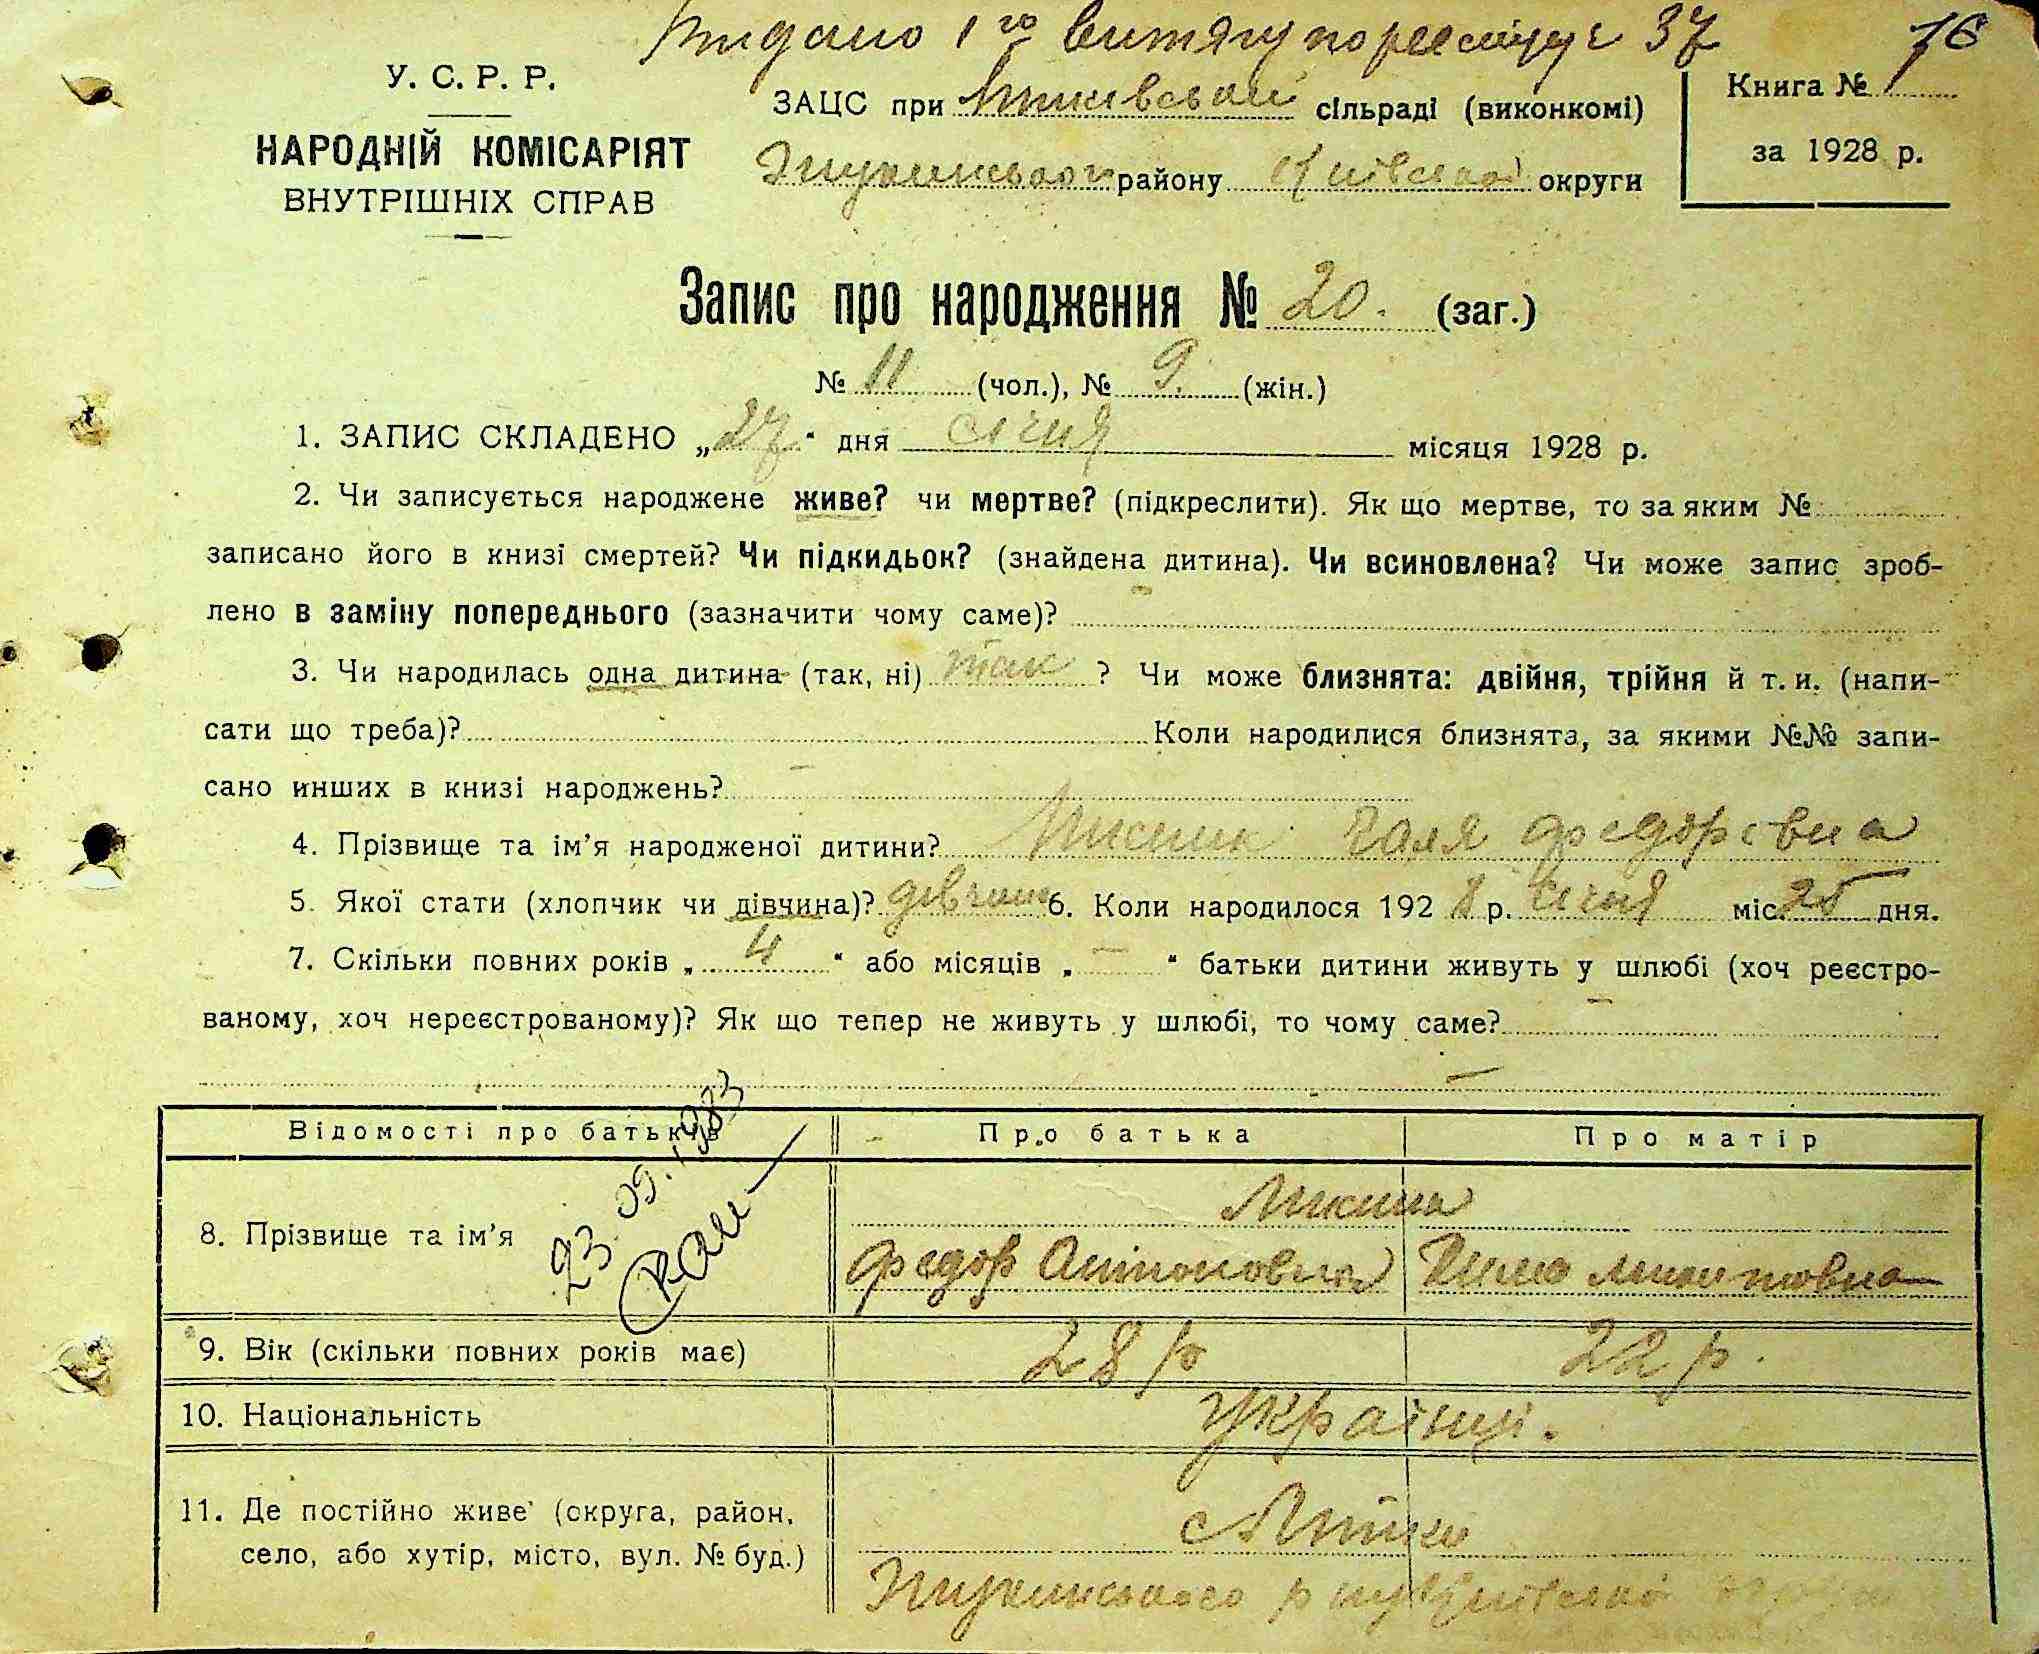 Видано 1го витягу по реєстру є 37 76
У. С. Р. Р.
НАРОДНІЙ КОМІСАРІЯТ
ВНУТРІШНІХ СПРАВ
ЗАЦС при Літківській сільраді (виконкомі)
району округи
Книга №
за 1928 р.
Запис про народження № 20. (заг.)
№ 11 (чол.), № 9. (жін.)
1. ЗАПИС СКЛАДЕНО „27“ дня січня місяця 1928 р.
2. Чи записується народжене живе? чи мертве? (підкреслити). Як що мертве, то за яким №
записано його в книзі смертей? Чи підкидьок? (знайдена дитина). Чи всиновлена? Чи може запис зроб-
лено в заміну попереднього (зазначити чому саме)?
3. Чи народилась одна дитина (так, ні) так ? Чи може близнята: двійня, трійня й т. и. (напи-
сати що треба)? Коли народилися близнята, за якими №№ запи-
сано инших в книзі народжень? —
4. Прізвище та ім'я народженої дитини? Галя Федоровна
5. Якої стати (хлопчик чи дівчина)? дівчина 6. Коли народилося 192 8 р. січня міс. 25 дня.
7. Скільки повних років „ 4 “ або місяців „ — “ батьки дитини живуть у шлюбі (хоч реєстро-
ваному, хоч нереєстрованому)? Як що тепер не живуть у шлюбі, то чому саме? —
—
Відомості про батьків Про батька Про матір
23.09.1983
8. Прізвище та ім'я
Федор Антонович
9. Вік (скільки повних років має) 28 р 22 р.
10. Національність Українці.
11. Де постійно живе (округа, район, с Літки
село, або хутір, місто, вул. № буд.)